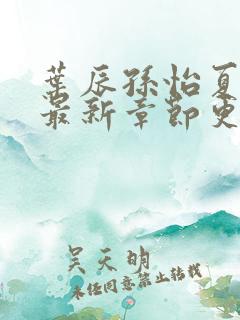 叶辰孙怡夏
最新章节更
吴天明
未经同意禁止转载